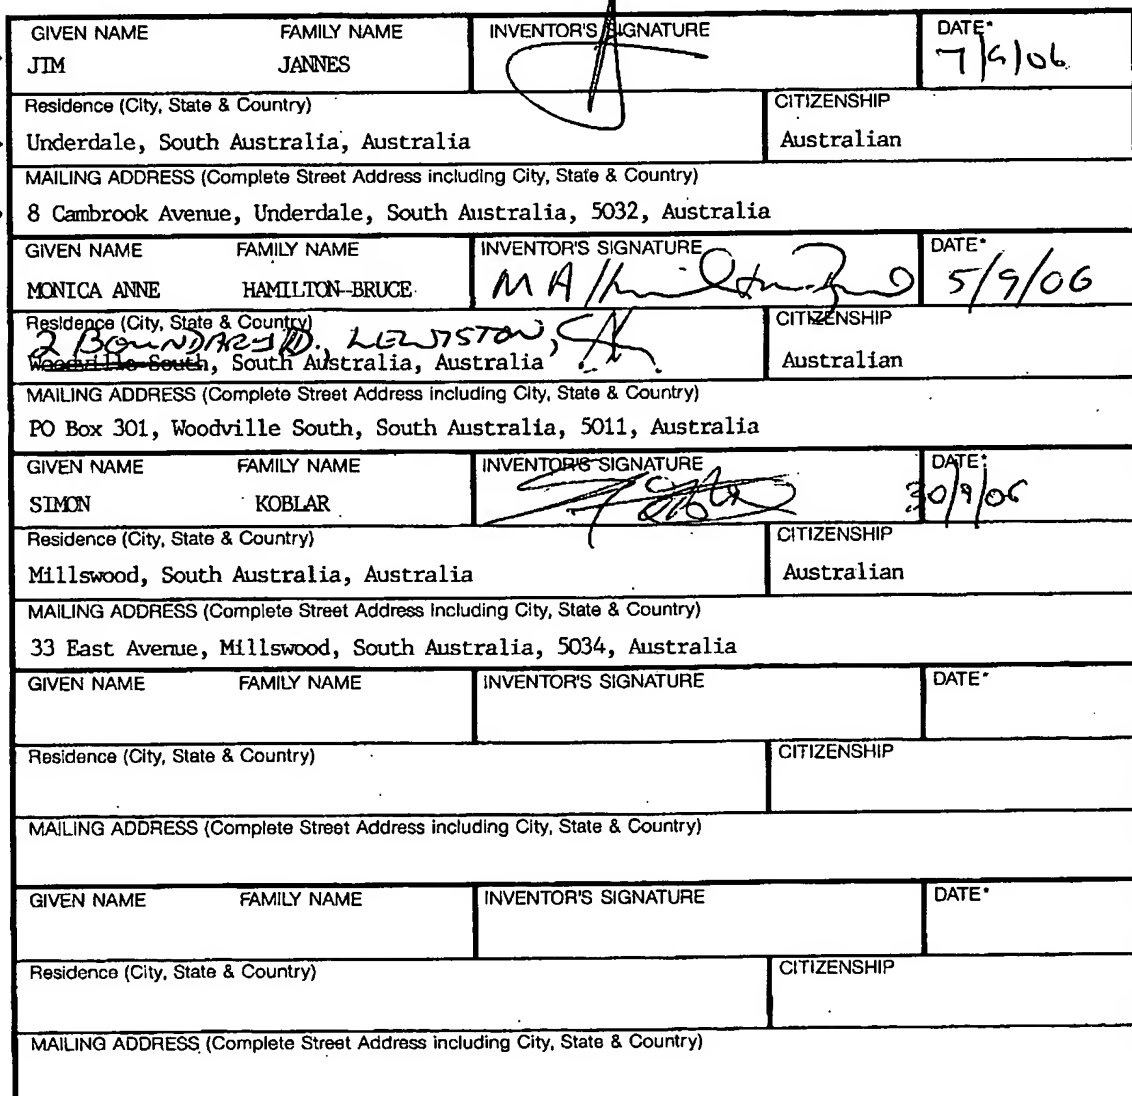 GIVEN NAME FAMILY NAME INVENTOR'S SIGNATURE DATE*
JIM JANNES 7/9/06
Residence (City, State & Country) CITIZENSHIP
Underdale, South Australia, Australia Australian
MAILING ADDRESS (Complete Street Address including City, State & Country)
8 Cambrook Avenue, Underdale, South Australia, 5032, Australia
GIVEN NAME FAMILY NAME INVENTOR'S SIGNATURE DATE*
MONICA ANNE HAMILTON-BRUCE M A Hamilton-Bruce 5/9/06
Residence (City, State & Country) CITIZENSHIP
2 BOUNDARY RD., LEWISTON,
Woodville South, South Australia, Australia Australian
MAILING ADDRESS (Complete Street Address including City, State & Country)
PO Box 301, Woodville South, South Australia, 5011, Australia
GIVEN NAME FAMILY NAME INVENTOR'S SIGNATURE DATE*
SIMON KOBLAR 30/9/06
Residence (City, State & Country) CITIZENSHIP
Millswood, South Australia, Australia Australian
MAILING ADDRESS (Complete Street Address Including City, State & Country)
33 East Avenue, Millswood, South Australia, 5034, Australia
GIVEN NAME FAMILY NAME INVENTOR'S SIGNATURE DATE*
Residence (City, State & Country) CITIZENSHIP
MAILING ADDRESS (Complete Street Address including City, State & Country)
GIVEN NAME FAMILY NAME INVENTOR'S SIGNATURE DATE*
Residence (City, State & Country) CITIZENSHIP
MAILING ADDRESS (Complete Street Address including City, State & Country)